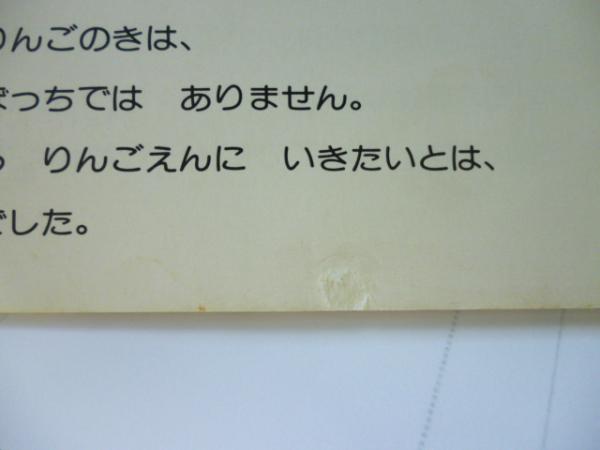 りんごのきは、
ぼっちでは　ありません。
りんごえんに　いきたいとは、
でした。